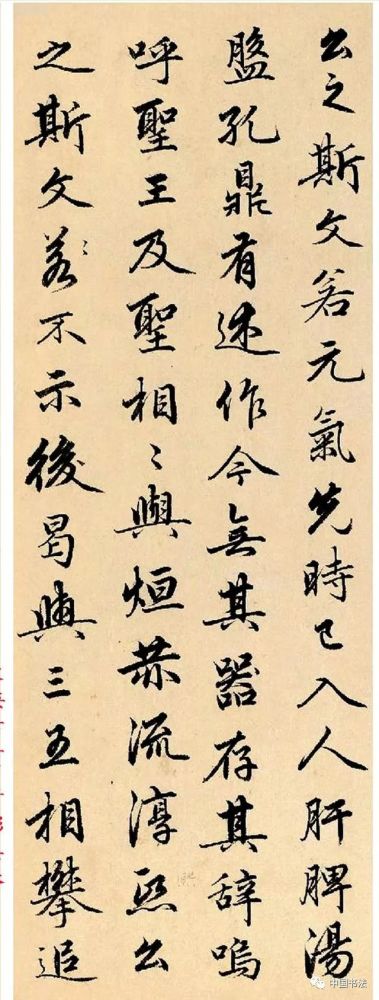 公之斯文若元氣先時已入人肝脾湯
盤孔鼎有述作今無其器存其辭嗚
呼聖王及聖相〻與烜赫流淳熙公
之斯文若不示後曷與三五相攀追
中国书法